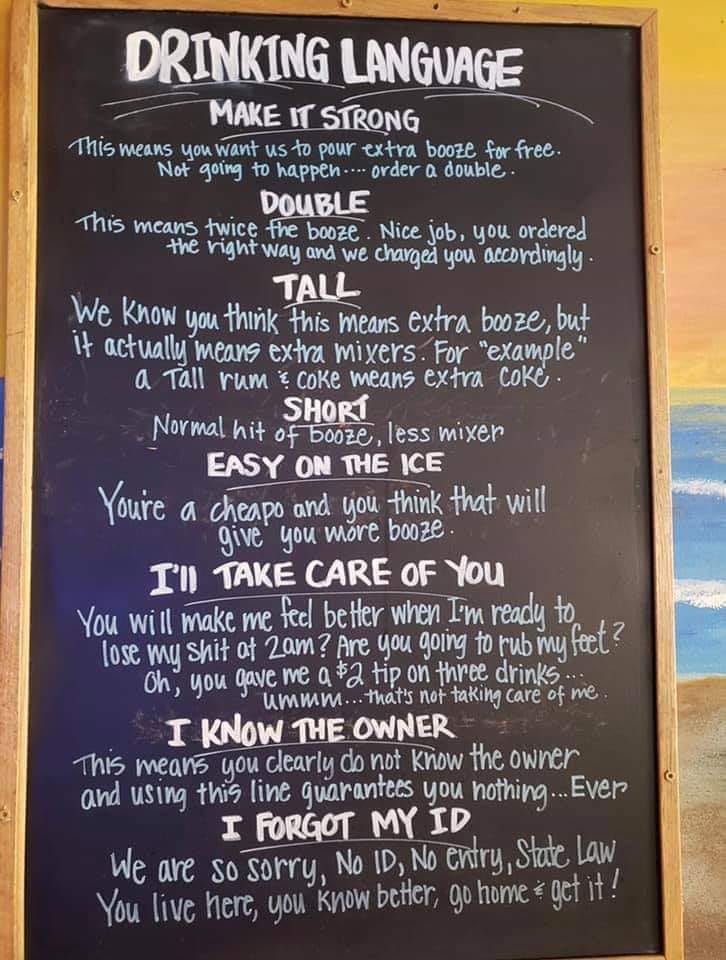 DRINKING LANGUAGE
MAKE IT STRONG
This means you want us to pour extra booze for free.
Not going to happen.... order a double.
DOUBLE
This means twice the booze. Nice job, you ordered
the right way and we charged you accordingly.
TALL
We know you think this means extra booze, but
it actually means extra mixers. For "example"
a Tall rum & coke means extra coke.
SHORT
Normal hit of booze, less mixer
EASY ON THE ICE
You're a cheapo and you think that will
give you more booze.
I'll TAKE CARE OF YOU
You will make me feel better when I'm ready to
lose my shit at 2am? Are you going to rub my feet?
Oh, you gave me a $2 tip on three drinks...
ummm...that's not taking care of me.
I KNOW THE OWNER
This means you clearly do not know the owner
and using this line guarantees you nothing...Ever
I FORGOT MY ID
We are so sorry, No ID, No entry, State Law
You live here, you know better, go home & get it!